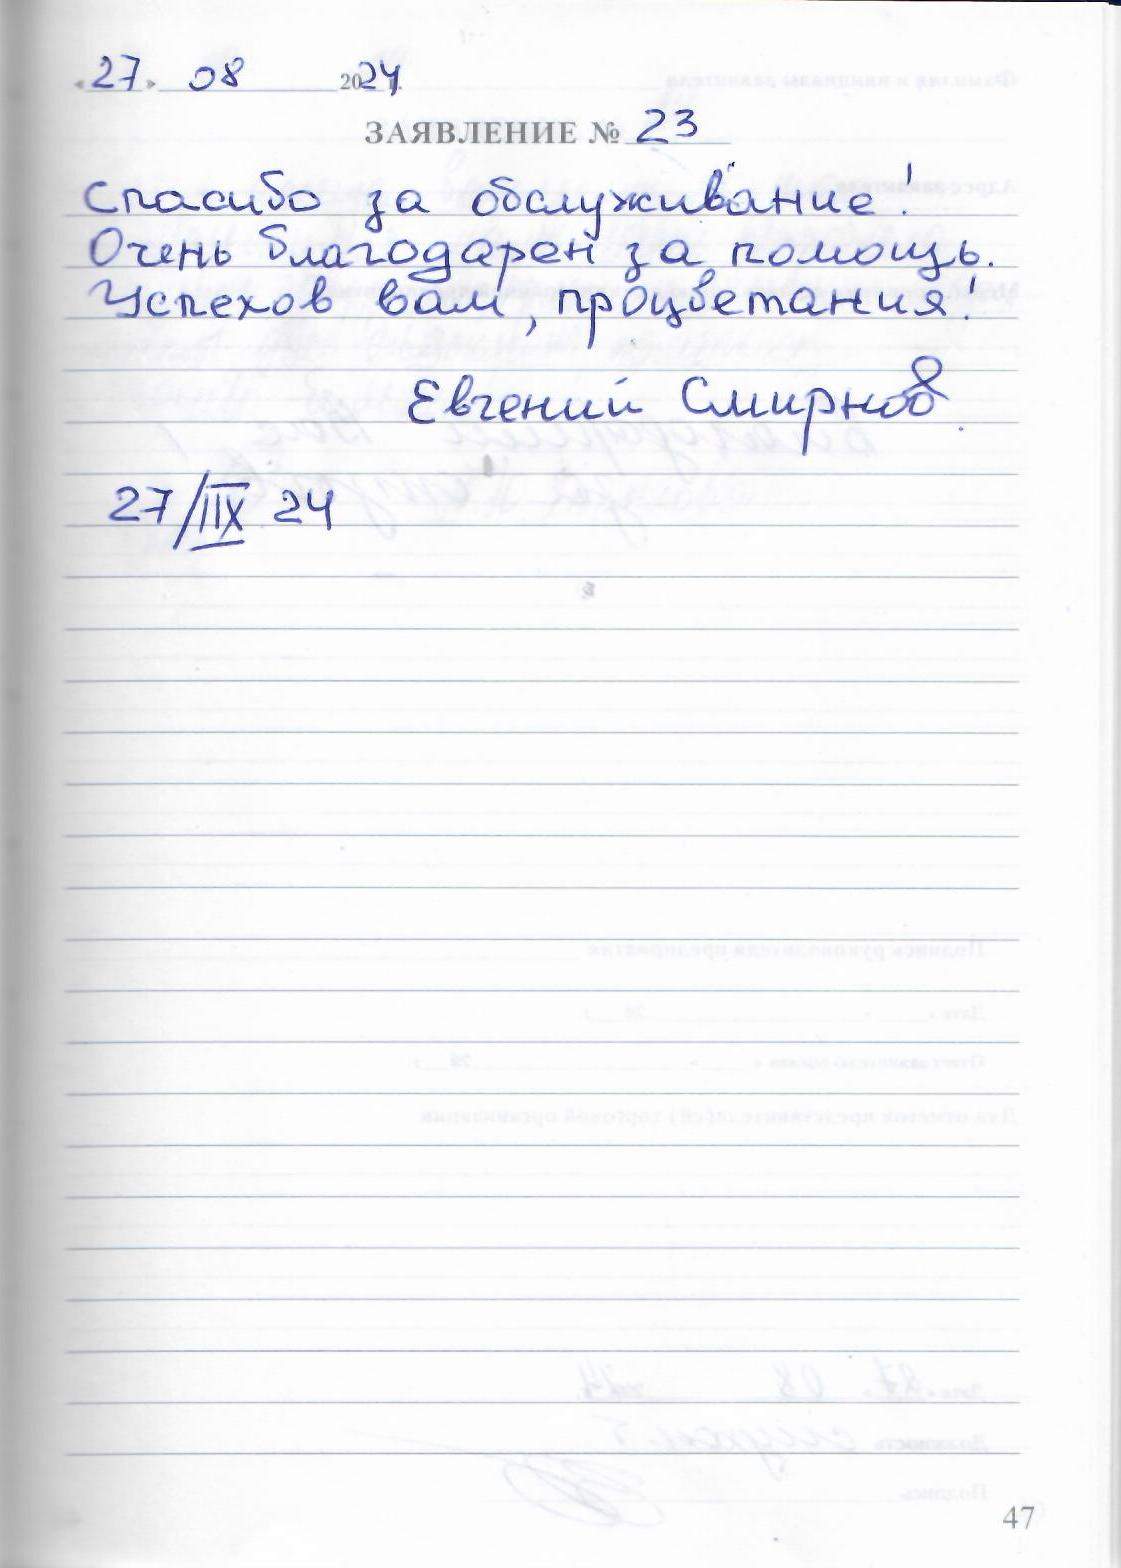 «27» 08 2024 г.
ЗАЯВЛЕНИЕ № 23
Спасибо за обслуживание!
Очень благодарен за помощь.
Успехов вам, процветания!
Евгений Смирнов
27/IIX 24
47